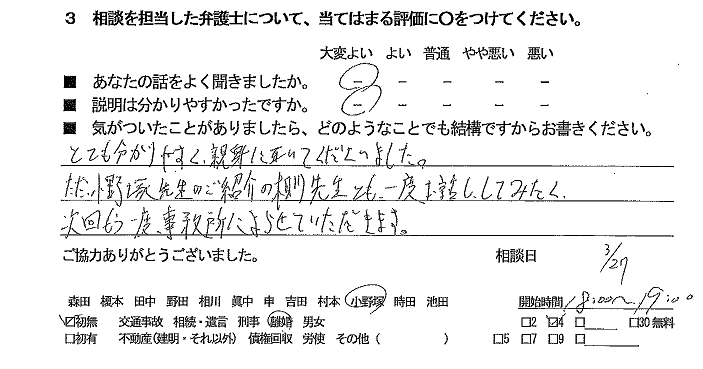 3 相談を担当した弁護士について、当てはまる評価に〇をつけてください。
大変よい よい 普通 やや悪い 悪い
■ あなたの話をよく聞きましたか。 － － － － －
■ 説明は分かりやすかったですか。 － － － － －
■ 気がついたことがありましたら、どのようなことでも結構ですからお書きください。
とても分かりやすく、親身に聞いてくださいました。
ただ、小野塚先生のご紹介の相川先生とも、一度お話ししてみたく、
次回もう一度、事務所によらせていただきます。
ご協力ありがとうございました。 相談日 3/27
森田 榎本 田中 野田 相川 眞中 申 吉田 村本 小野塚 時田 池田 開始時間 18:00～19:00
☑初無 交通事故 相続・遺言 刑事 離婚 男女 □2 ☑4 □ □30無料
□初有 不動産(建明・それ以外) 債権回収 労使 その他( ) □5 □7 □9 □